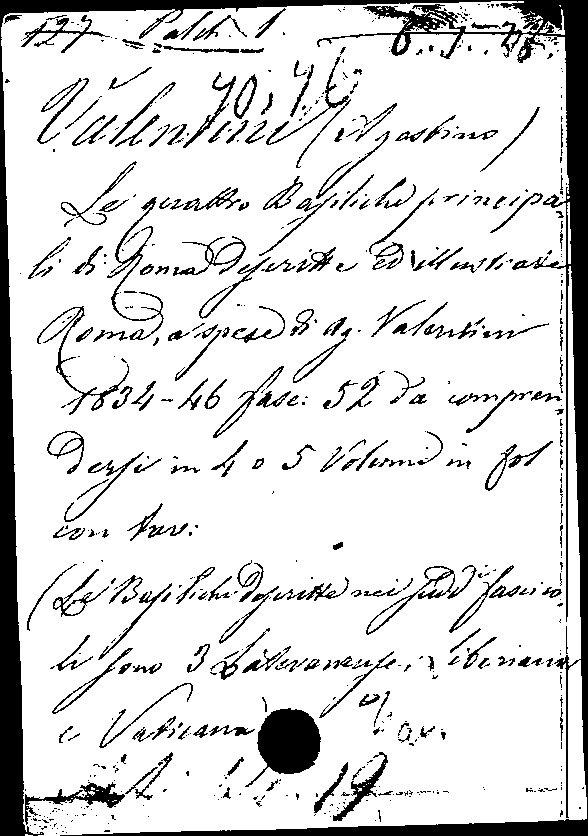 127 Palch. 1. 6.7.76.
70.76
Valentini (Agostino)
Le quattro Basiliche principa-
li di Roma descritte ed illustrate
Roma, a spese di Ag. Valentini
1834-46 fasc: 52 da compren-
dersi in 4 o 5 Volumi in fol
con tav:
(Le Basiliche descritte nei sudd.i fascico-
li sono 3 Lateranense, Liberiana
e Vaticana)
19